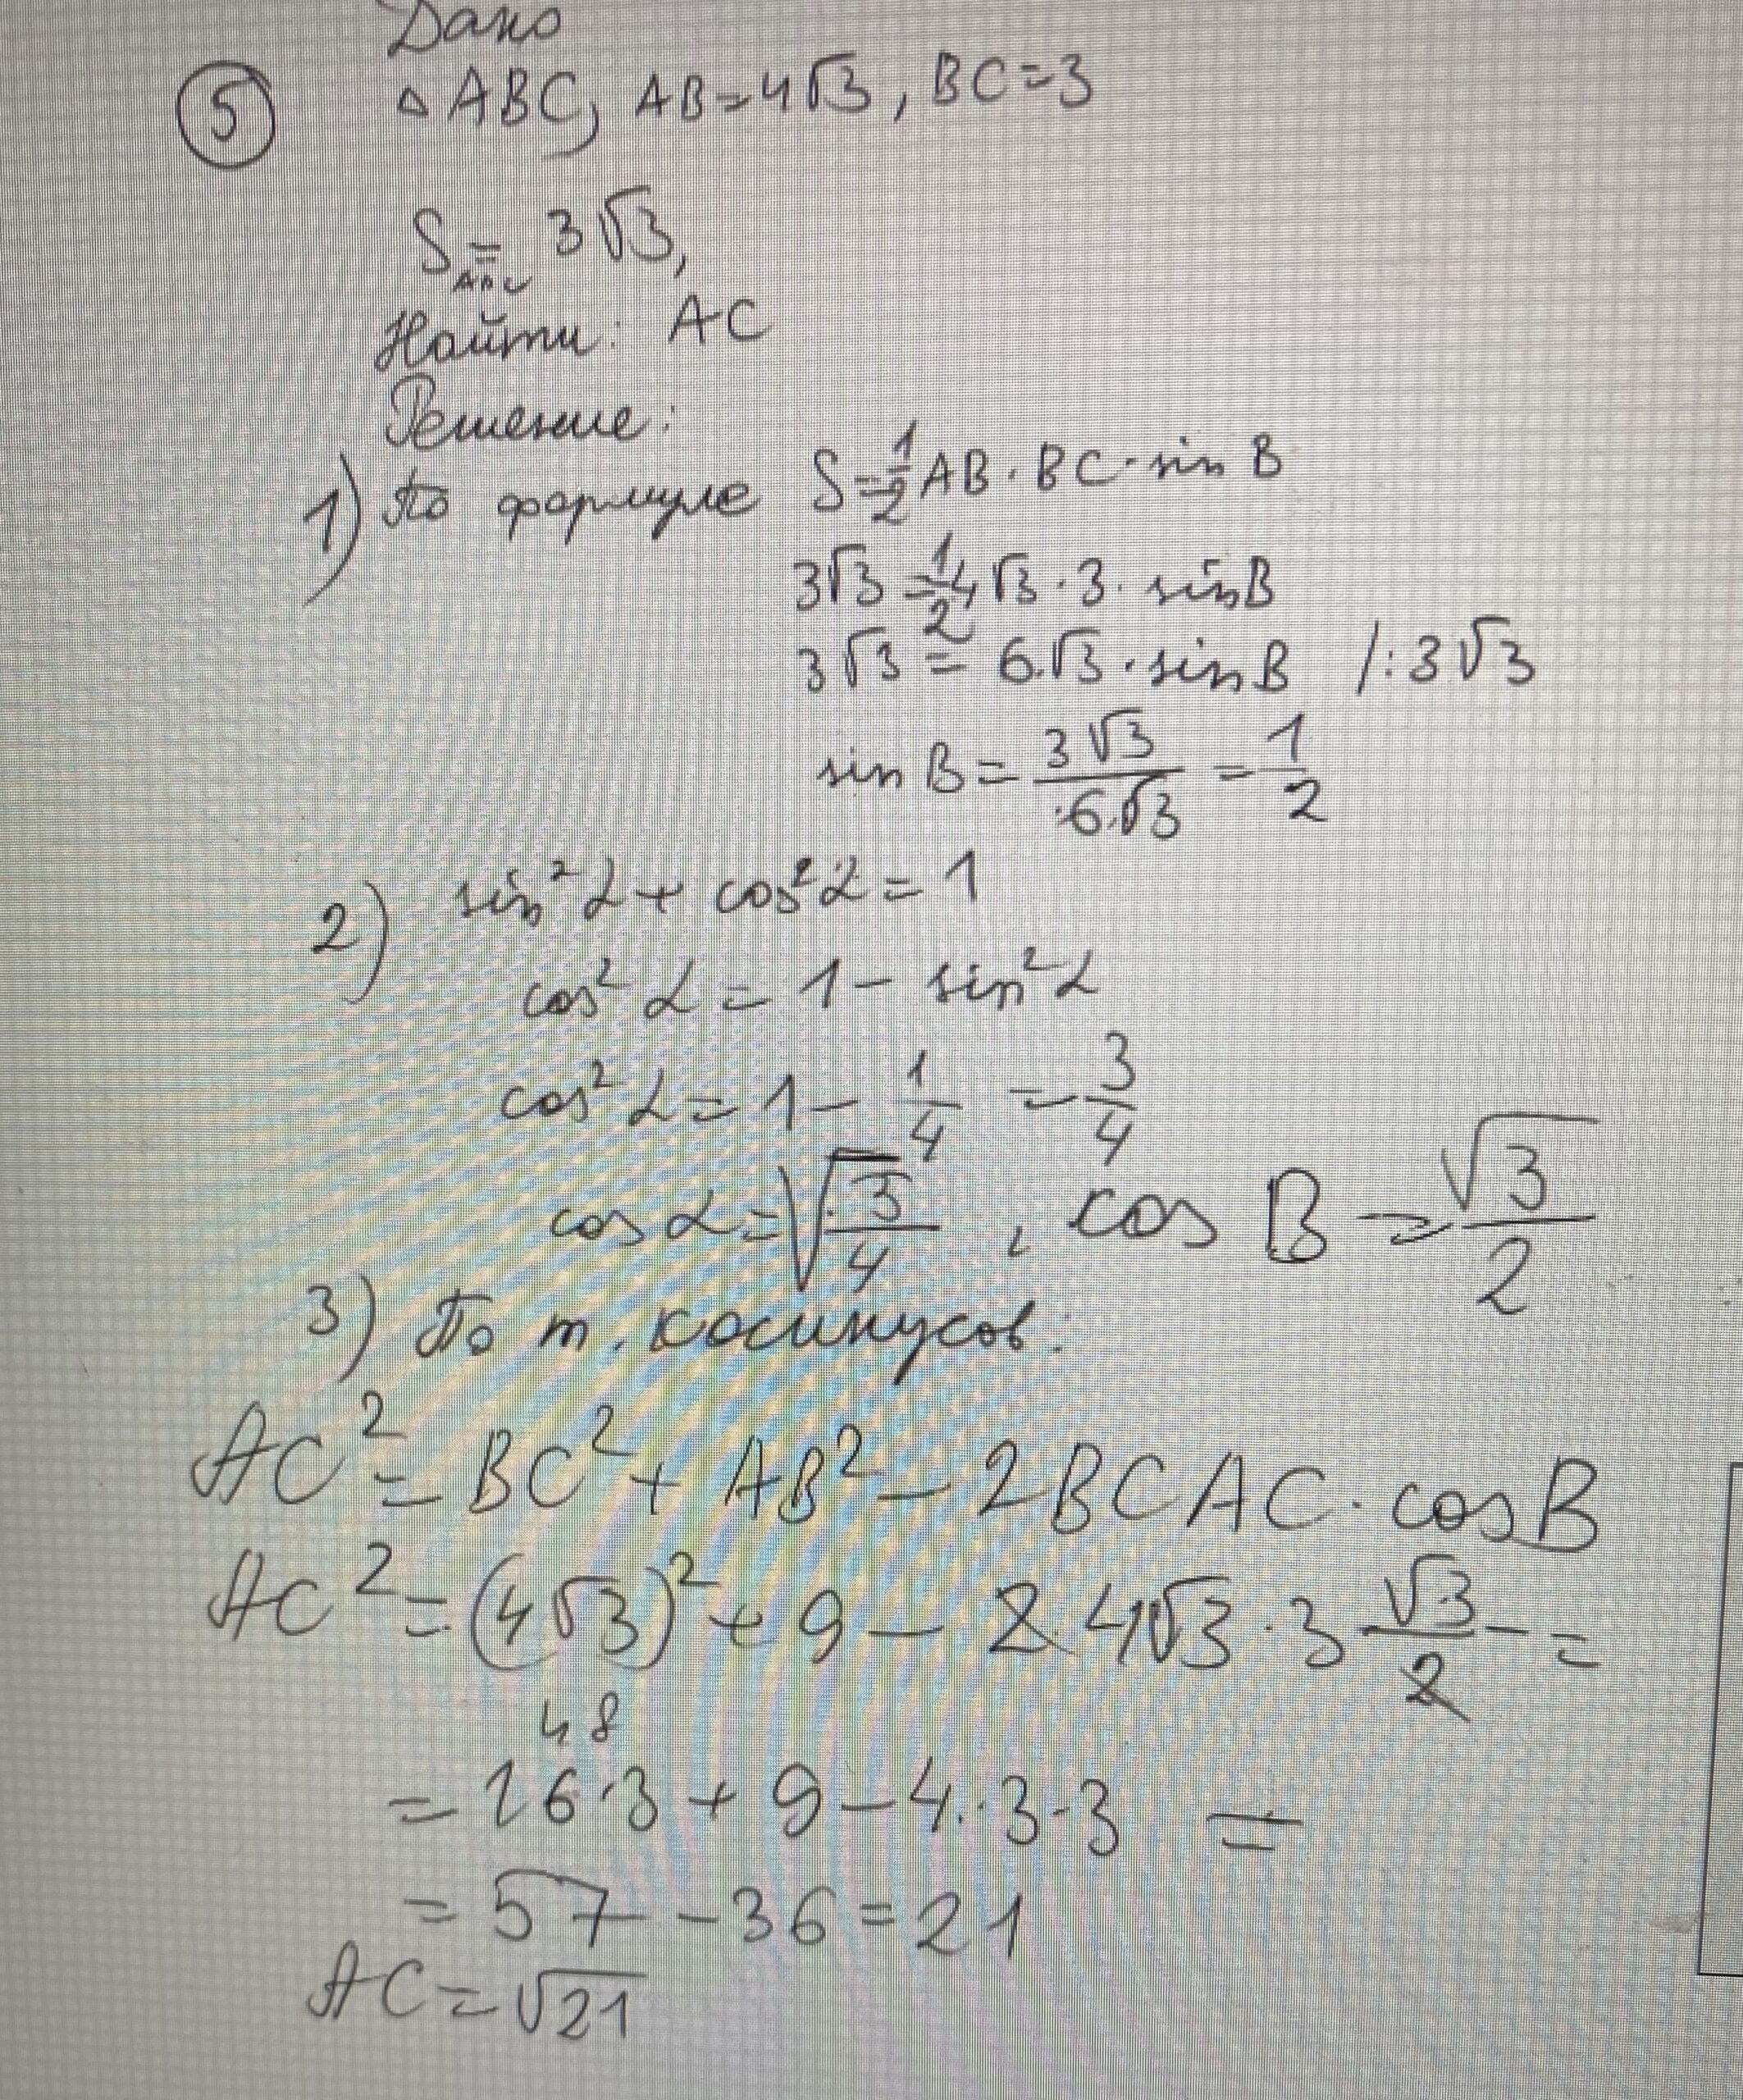 Дано
⑤ △ABC, AB=4√3, BC=3
S_ABC = 3√3,
Найти: AC
Решение:
1) По формуле S=1/2 AB·BC·sin B
3√3 = 1/2 4√3·3·sin B
3√3 = 6√3·sin B /:3√3
sin B = 3√3/6√3 = 1/2
2) sin²α + cos²α = 1
cos²α = 1 - sin²α
cos²α = 1 - 1/4 = 3/4
cos α = √(3/4), cos B = √3/2
3) По т. косинусов:
AC² = BC² + AB² - 2BCAC·cos B
AC² = (4√3)² + 9 - 2·4√3·3 √3/2 =
48
= 16·3 + 9 - 4·3·3 =
= 57 - 36 = 21
AC = √21